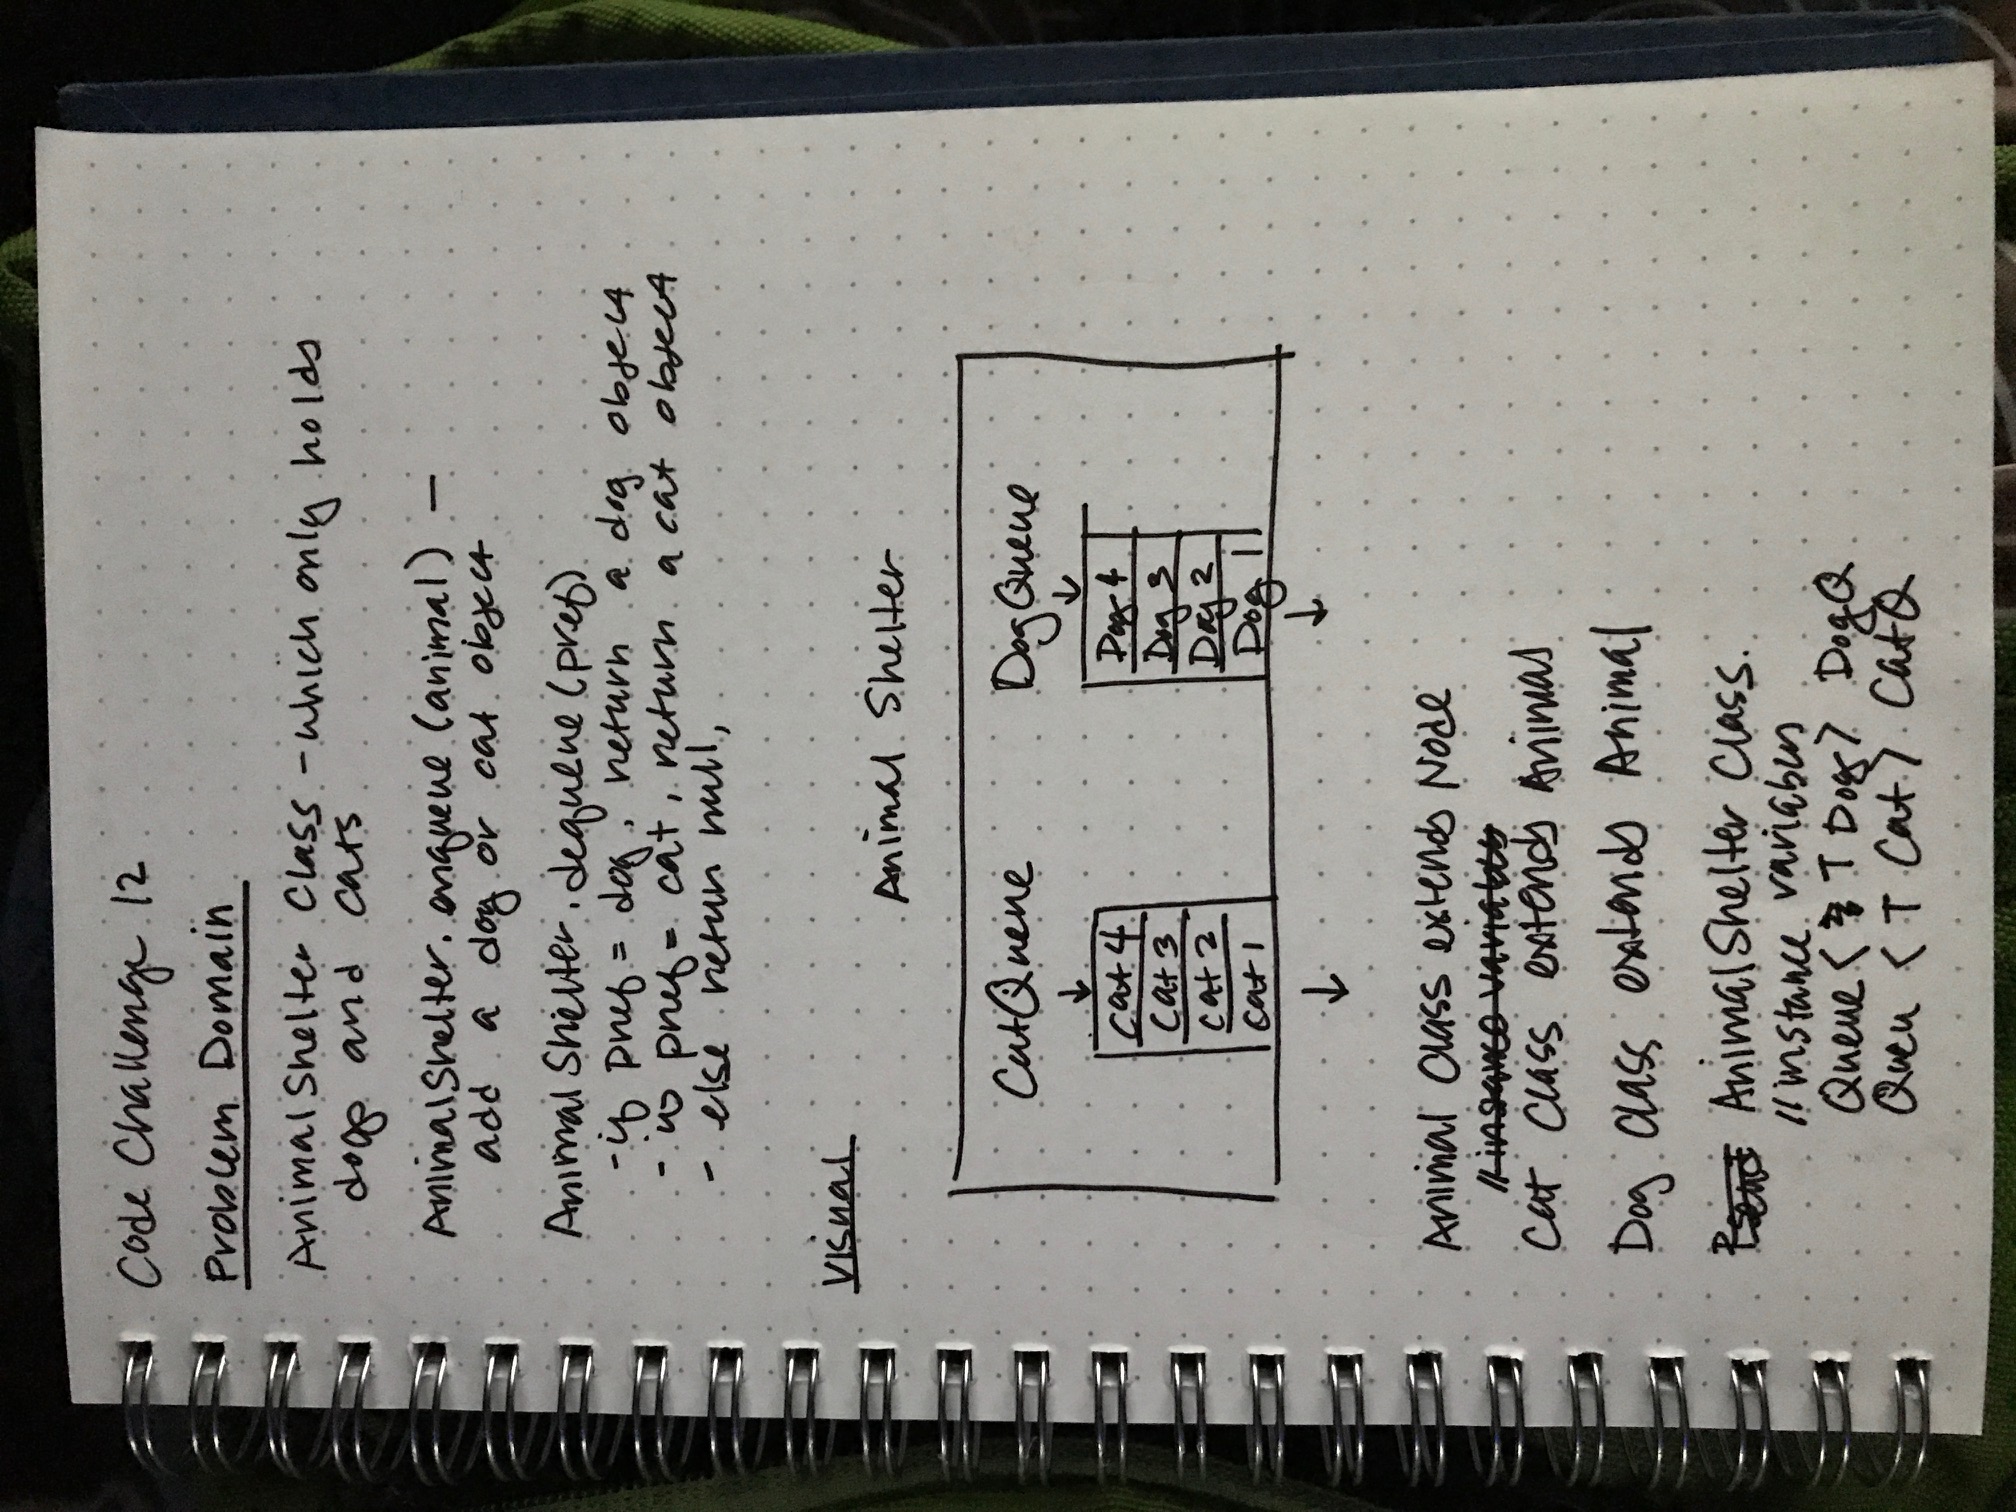 Code Challenge 12
Problem Domain
AnimalShelter Class - which only holds
dogs and cats
AnimalShelter.enqueue (animal) —
add a dog or cat object
AnimalShelter.dequeue (pref)
- if pref = dog, return a dog object
- if pref = cat, return a cat object
- else retun null,
Visual
Animal Shelter
CatQueue DogQueue
↓ ↓
Cat 4 Dog 4
Cat 3 Dog 3
Cat 2 Dog 2
Cat 1 Dog 1
↓ ↓
Animal Class extends Node
Cat Class extends Animal
Dog Class extends Animal
AnimalShelter Class.
// instance variables
Queue < T Dog> DogQ
Queu < T Cat> CatQ